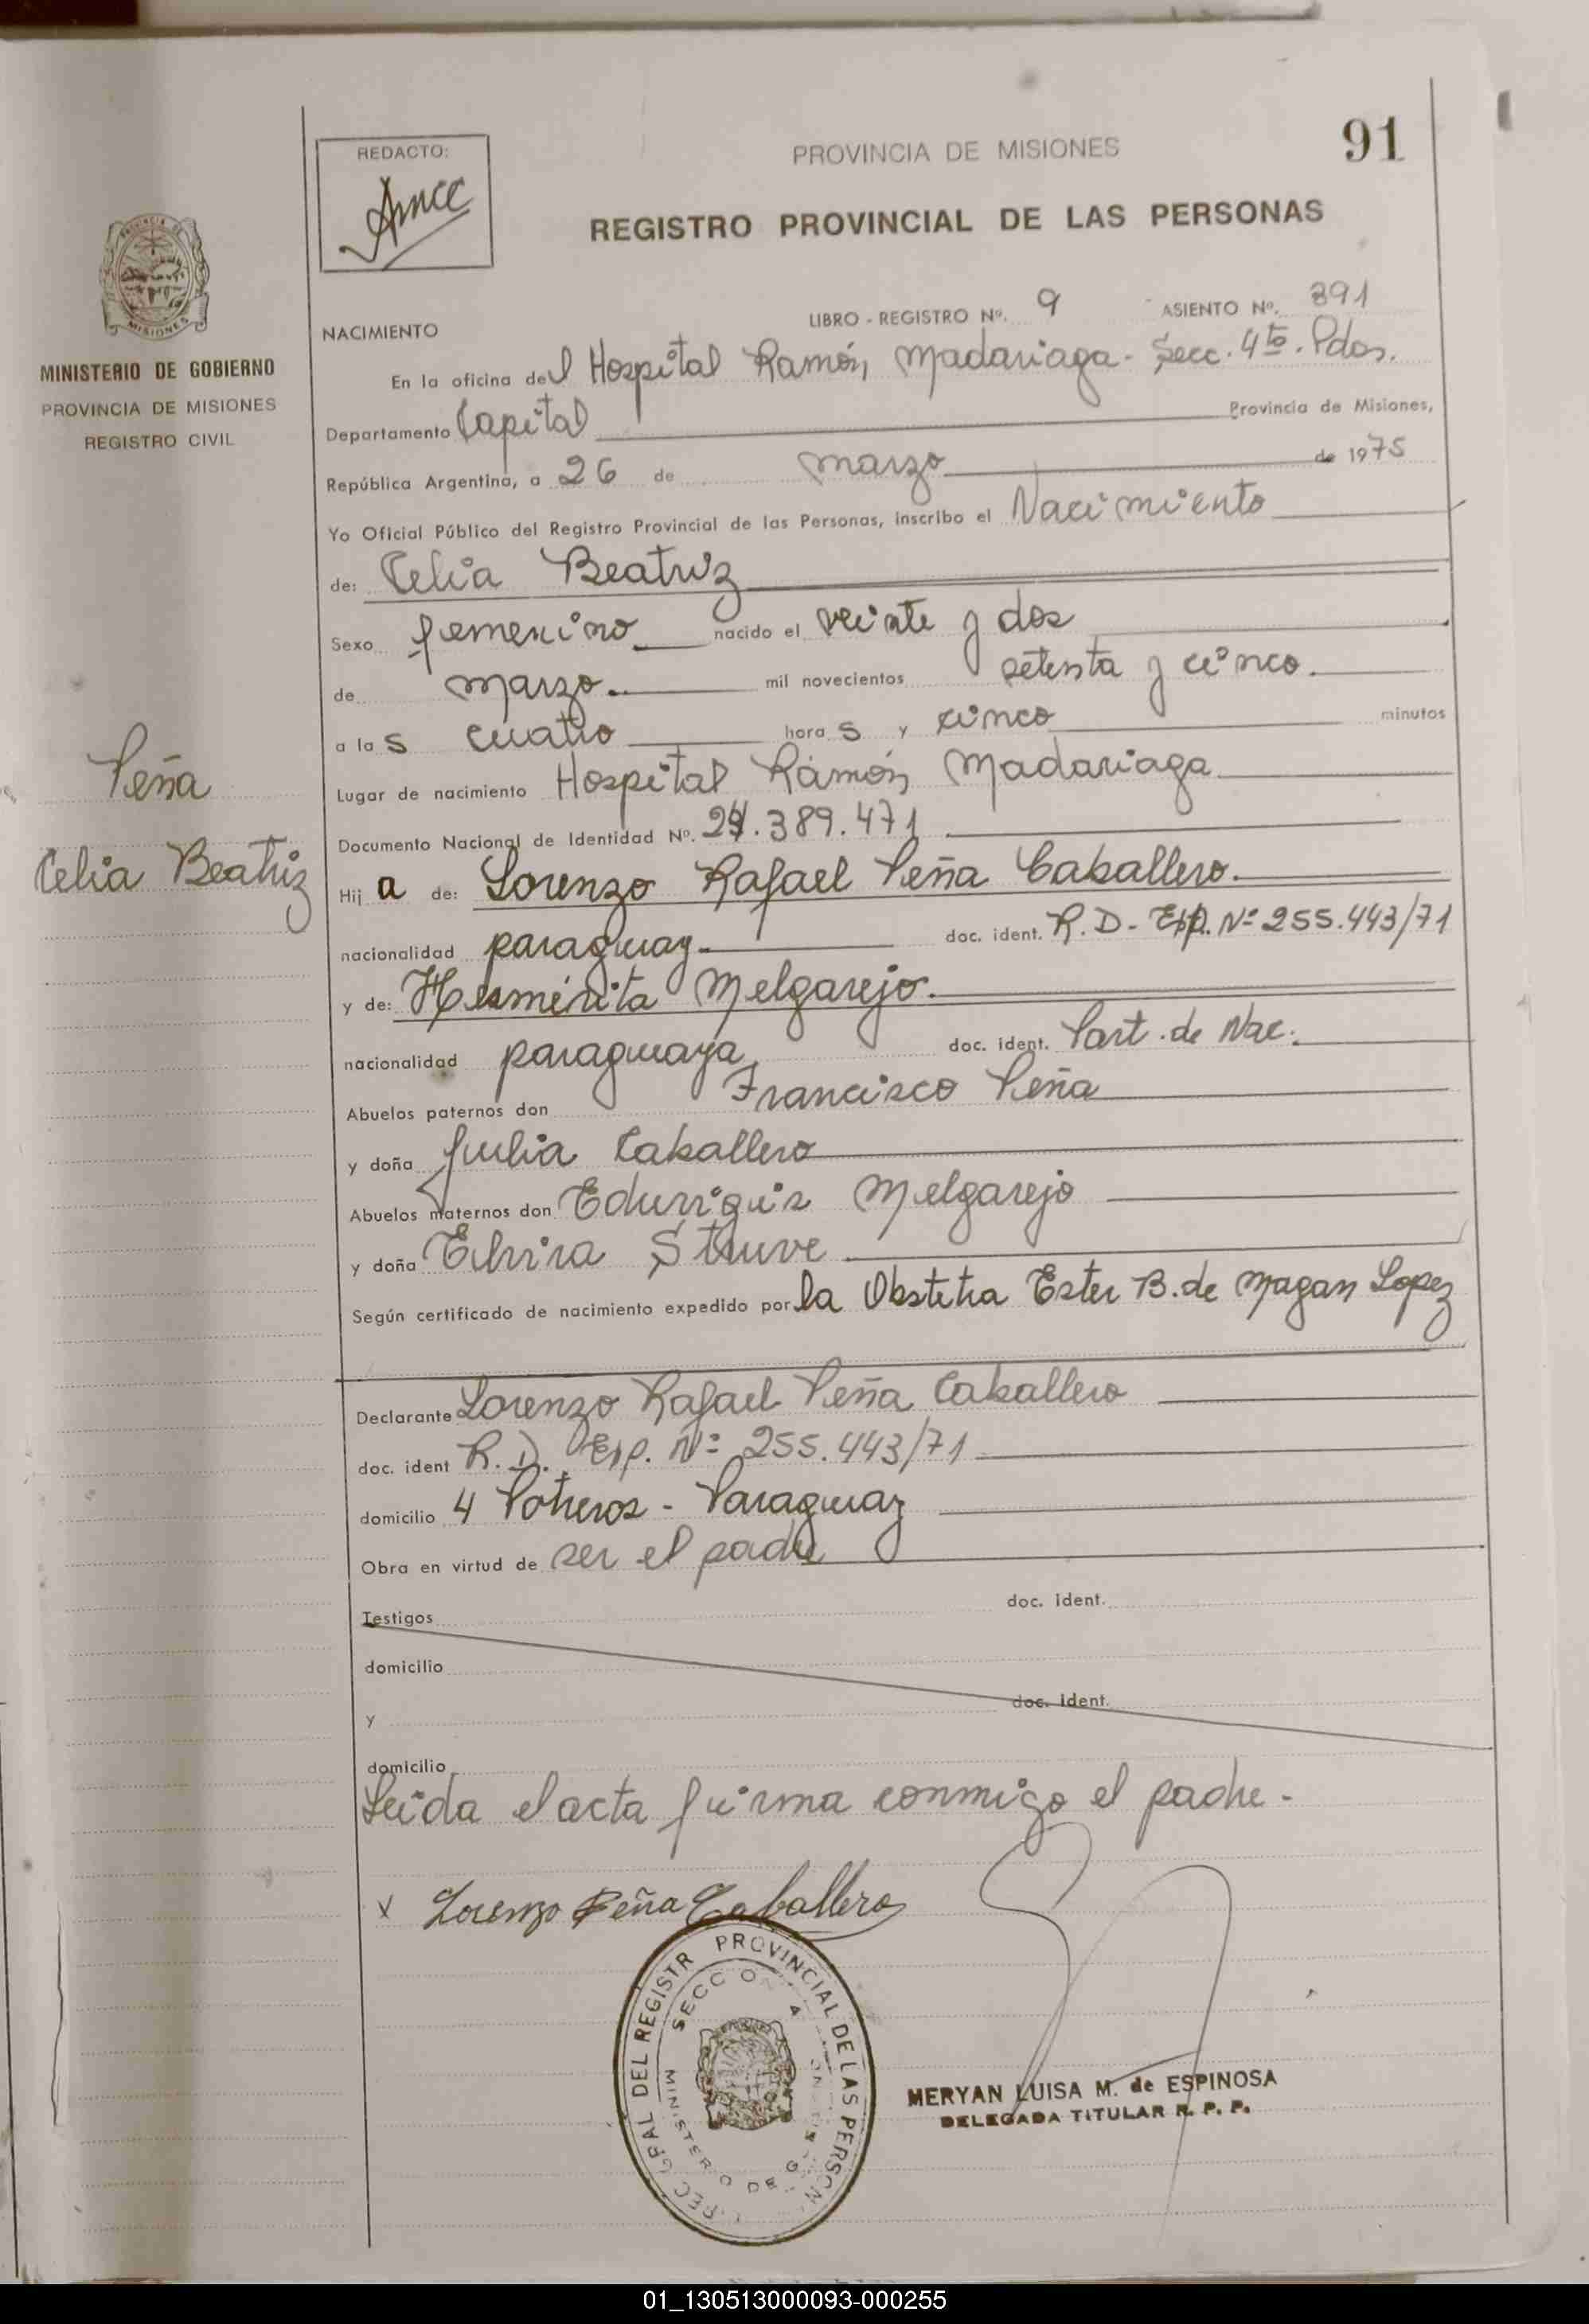 REDACTO:
PROVINCIA DE MISIONES
91
REGISTRO PROVINCIAL DE LAS PERSONAS
MISIONES
MINISTERIO DE GOBIERNO
PROVINCIA DE MISIONES
REGISTRO CIVIL
NACIMIENTO
LIBRO - REGISTRO Nº. 9 ASIENTO Nº. 891
En la oficina del Hospital Ramón Madariaga - Secc. 4to. Pdas.
Departamento Capital Provincia de Misiones,
República Argentina, a 26 de marzo de 1975
Yo Oficial Público del Registro Provincial de las Personas, inscribo el Nacimiento
de: Celia Beatriz
Sexo femenino nacido el veinte y dos
de marzo. mil novecientos setenta y cinco.
a las cuatro horas y cinco minutos
Lugar de nacimiento Hospital Ramón Madariaga
Documento Nacional de Identidad Nº. 24.389.471
Peña
Celia Beatriz
Hija de: Lorenzo Rafael Peña Caballero.
nacionalidad paraguay. doc. ident. R. D - Exp. Nº 255.443/71
y de: Hermérita Melgarejo.
nacionalidad paraguaya doc. ident. Part. de Nac.
Abuelos paternos don Francisco Peña
y doña Julia Caballero
Abuelos maternos don Eduvigis Melgarejo
y doña Elvira Struve
Según certificado de nacimiento expedido por la Obstetra Ester B. de Magan Lopez
Declarante Lorenzo Rafael Peña Caballero
doc. ident R. D. Exp. Nº 255.443/71
domicilio 4 Potreros - Paraguay
Obra en virtud de ser el padre
Testigos doc. ident.
domicilio
y doc. ident.
domicilio
Leida el acta firma conmigo el padre -
x Lorenzo Peña Caballero
REGISTR PROVINCIAL DE LAS PERSON
SECCION 4
MINISTERIO DE G
MERYAN LUISA M. de ESPINOSA
DELEGADA TITULAR R. P. P.
01_130513000093-000255